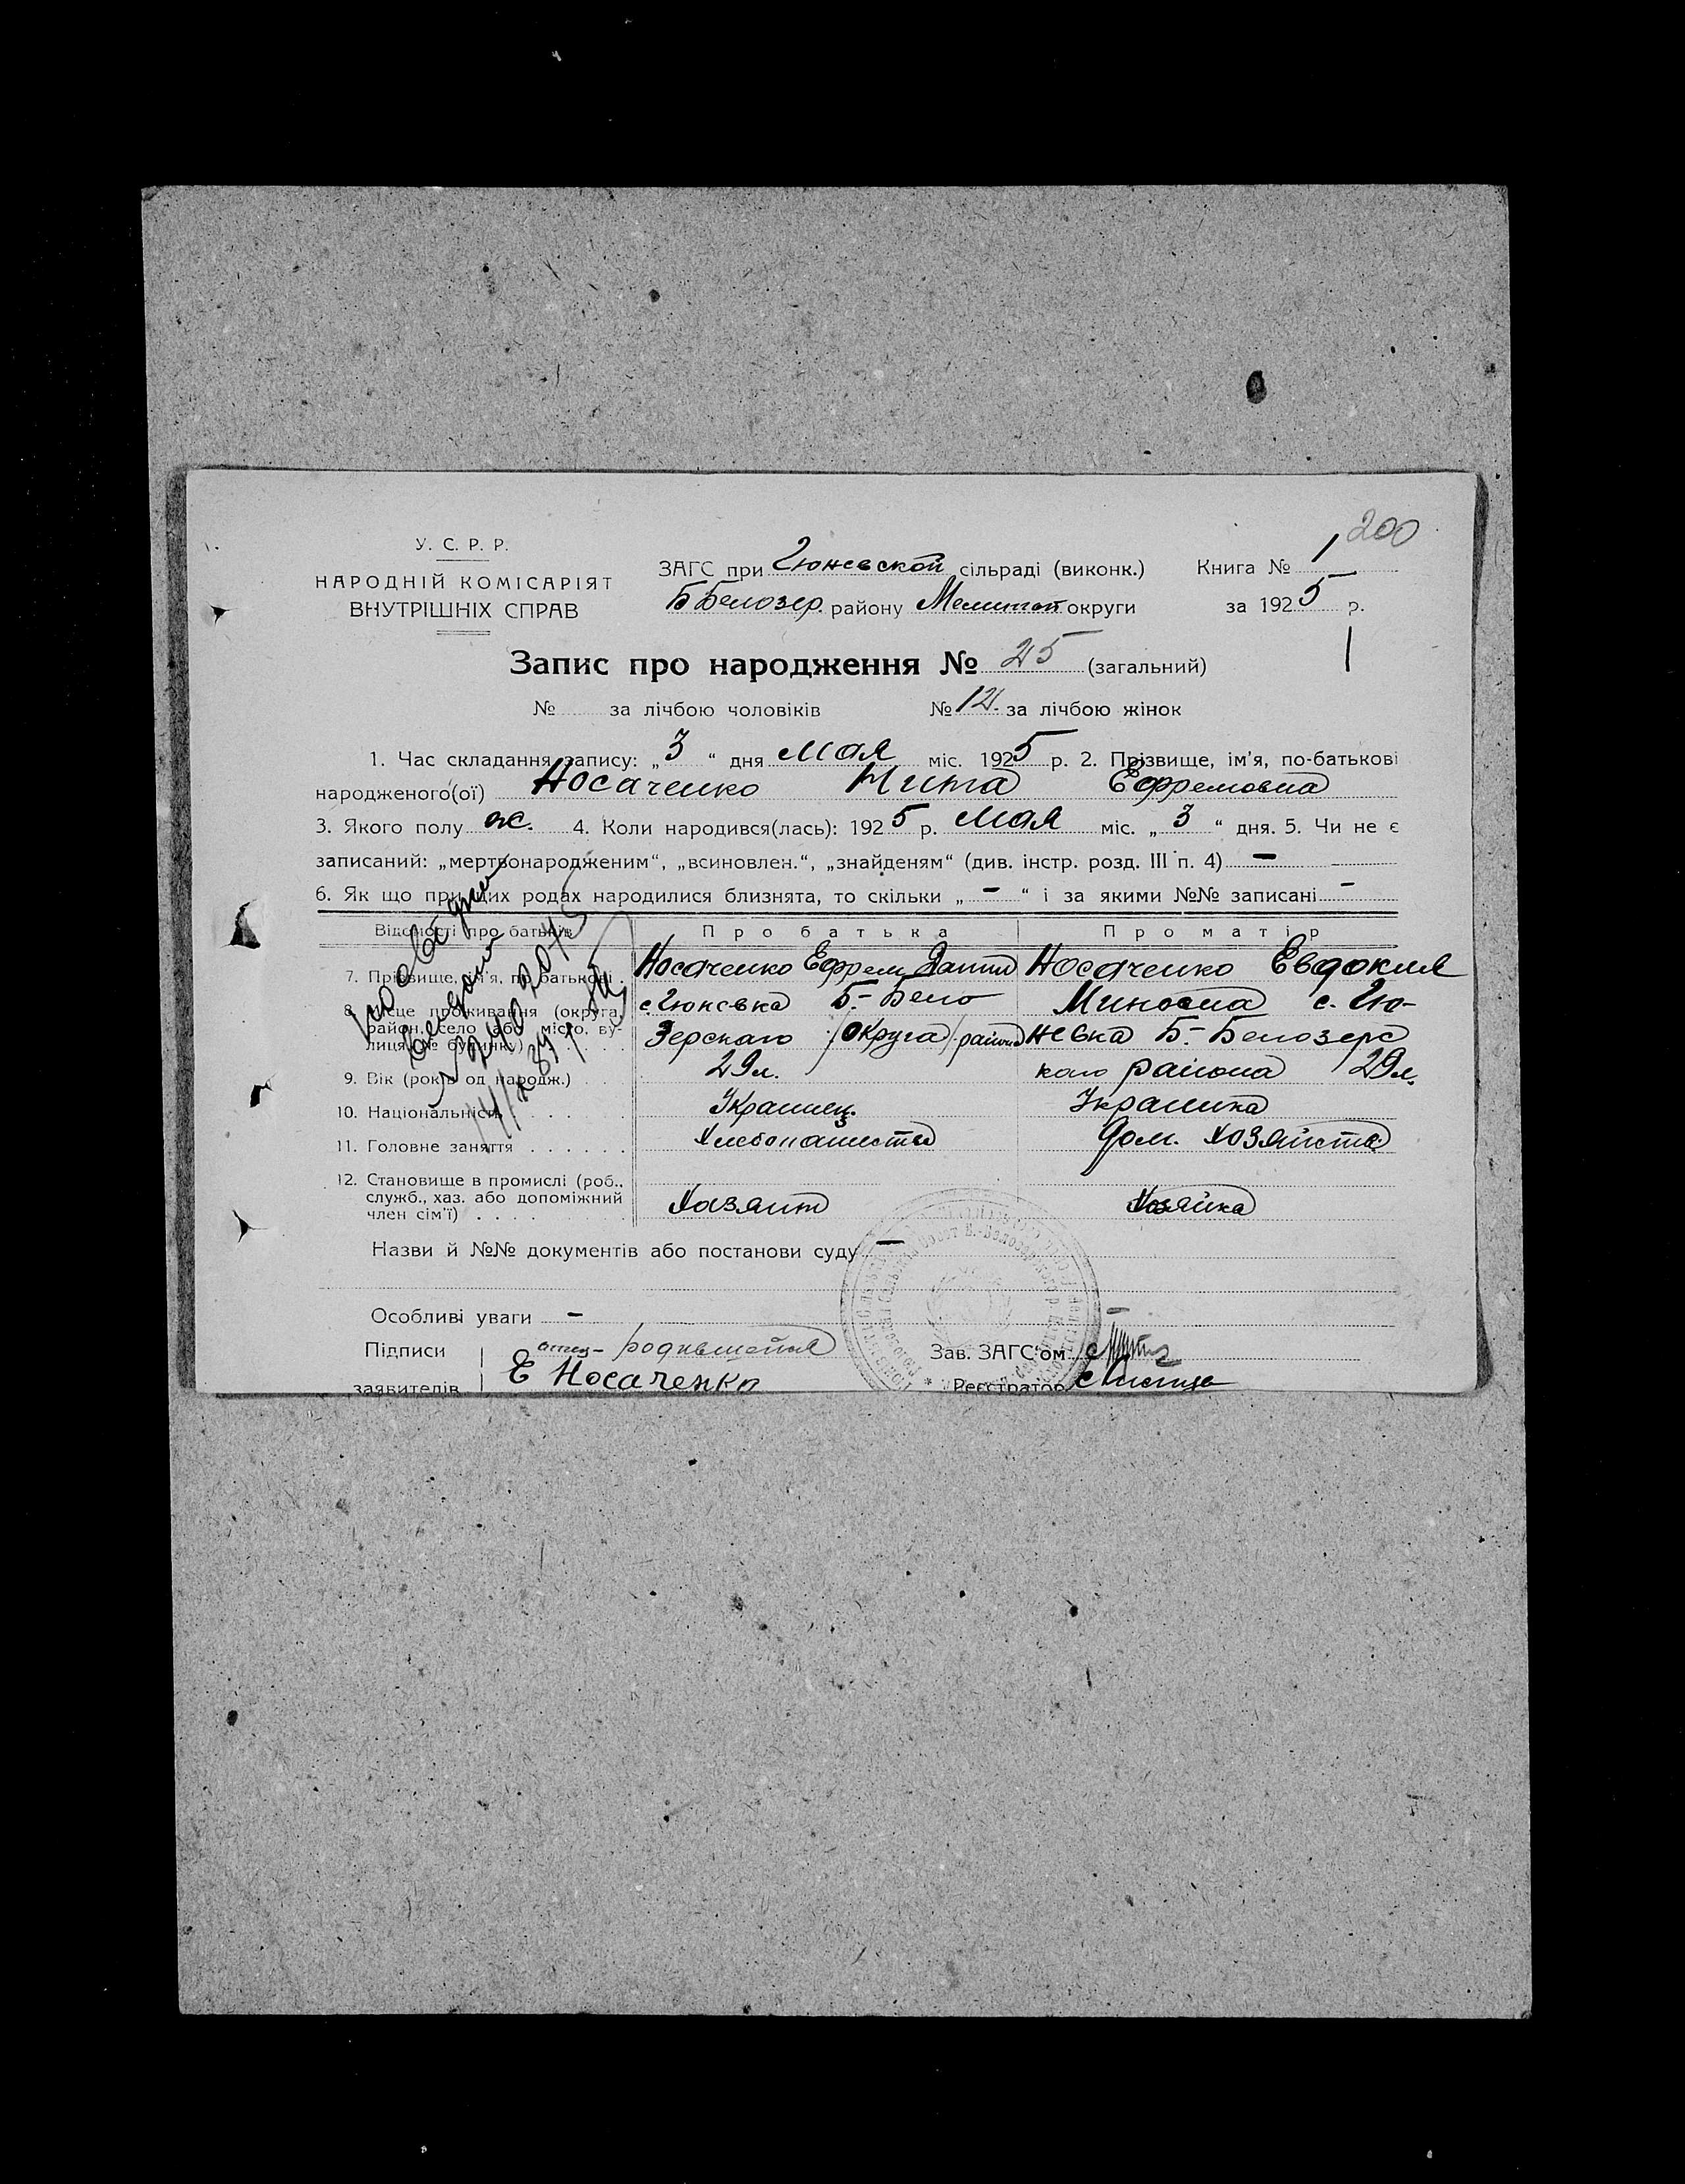 200
У. С. Р. Р.
НАРОДНІЙ КОМІСАРІЯТ
ВНУТРІШНІХ СПРАВ
ЗАГС при Гюневской сільраді (виконк.) Книга № 1
Б Белозер. району Мелитоп округи за 1925 р.
Запис про народження № 25 (загальний)
№ за лічбою чоловіків № 12. за лічбою жінок
1. Час складання запису: „3“ дня мая міс. 1925 р. 2. Прізвище, ім'я, по-батькові
народженого(ої) Носаченко Нина Ефремовна
3. Якого полу ж. 4. Коли народився(лась): 1925 р. мая міс. „3“ дня. 5. Чи не є
записаний: „мертвонародженим“, „всиновлен.“, „знайденям“ (див. інстр. розд. III п. 4) —
6. Як що при цих родах народилися близнята, то скільки „—“ і за якими №№ записані —
Відомості про батьків Про батька Про матір
7. Прізвище, ім'я, по батькові Носаченко Ефрем Данил Носаченко Евдокия
8. Місце проживання (округа, с. Гюневка Б.-Бело Миновна с. Гю-
район, село або місто, ву- Зерскаго /округа/ района невка Б.-Белозерс
лиця, № будинку)
9. Вік (років од народж.) 29 л. каго района 29 л.
10. Національність Украинец. Украинка
11. Головне заняття Хлебопашество Дом. хозяйство
12. Становище в промислі (роб.,
служб., хаз. або допоміжний
член сім'ї) Хозяин Хозяйка
Назви й №№ документів або постанови суду —
Особливі уваги —
Підписи отец- Зав. ЗАГС'ом
заявителів Е Носаченко Реєстратор